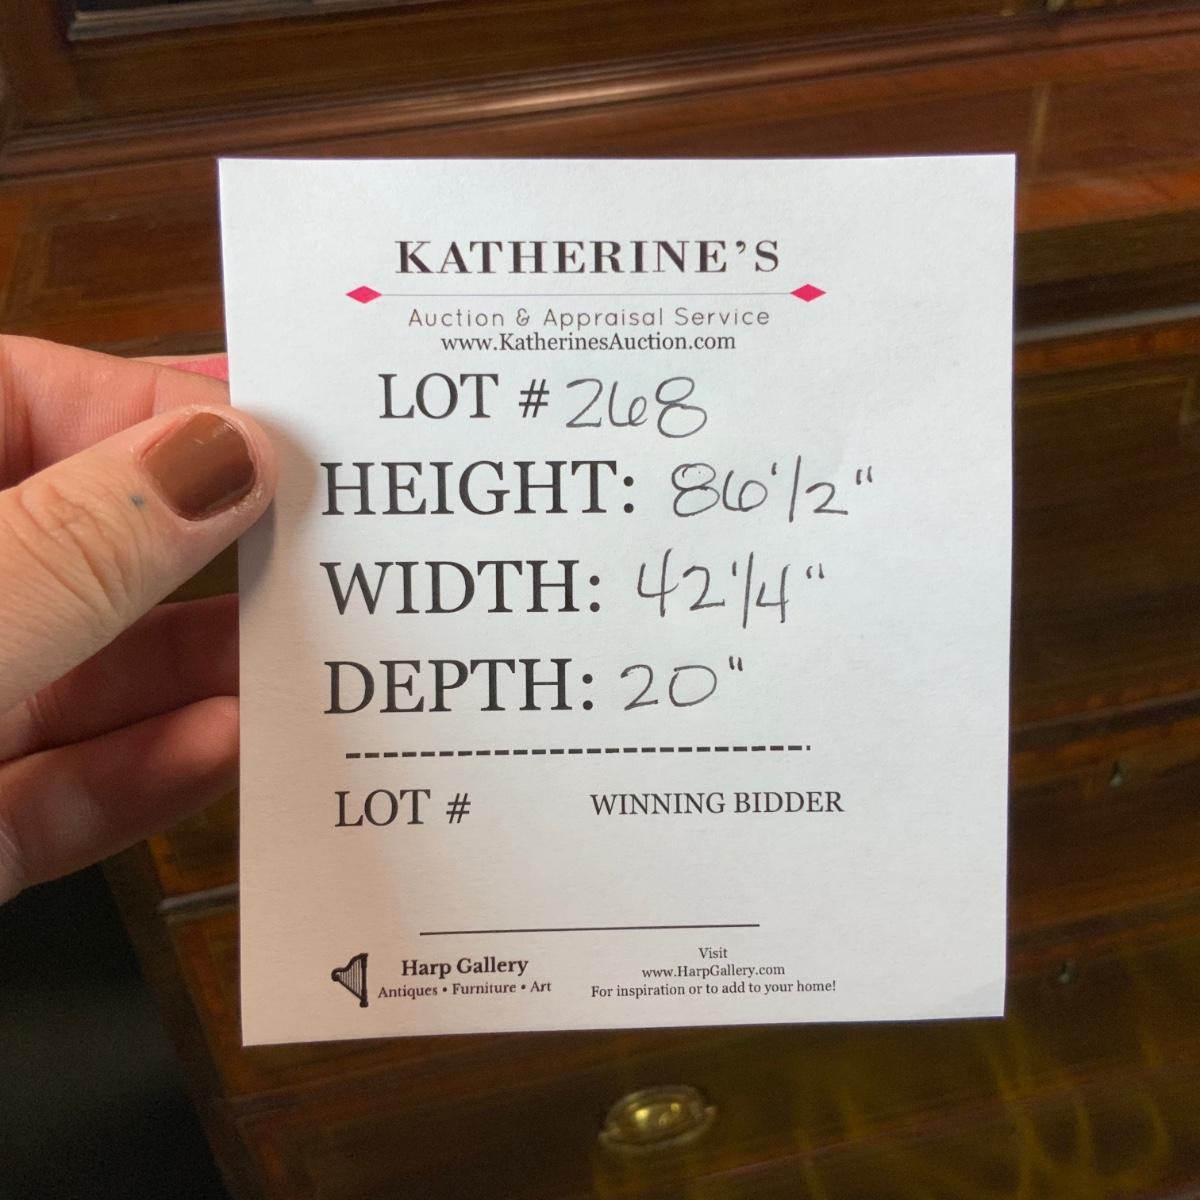 KATHERINE'S
Auction & Appraisal Service
www.KatherinesAuction.com
LOT # 268
HEIGHT: 86 1/2"
WIDTH: 42 1/4"
DEPTH: 20"
LOT # WINNING BIDDER
Harp Gallery
Antiques • Furniture • Art
Visit
www.HarpGallery.com
For inspiration or to add to your home!